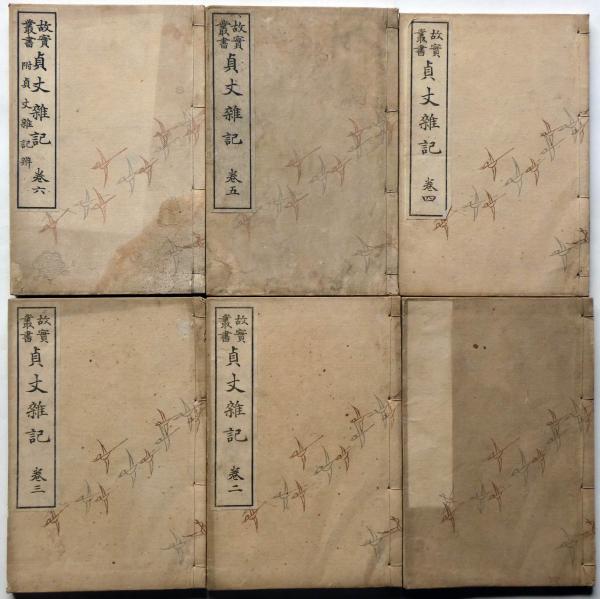 故實
叢書
貞丈雜記
附貞丈雜記辨
卷六
故實
叢書
貞丈雜記
卷五
故實
叢書
貞丈雜記
卷四
故實
叢書
貞丈雜記
卷三
故實
叢書
貞丈雜記
卷二